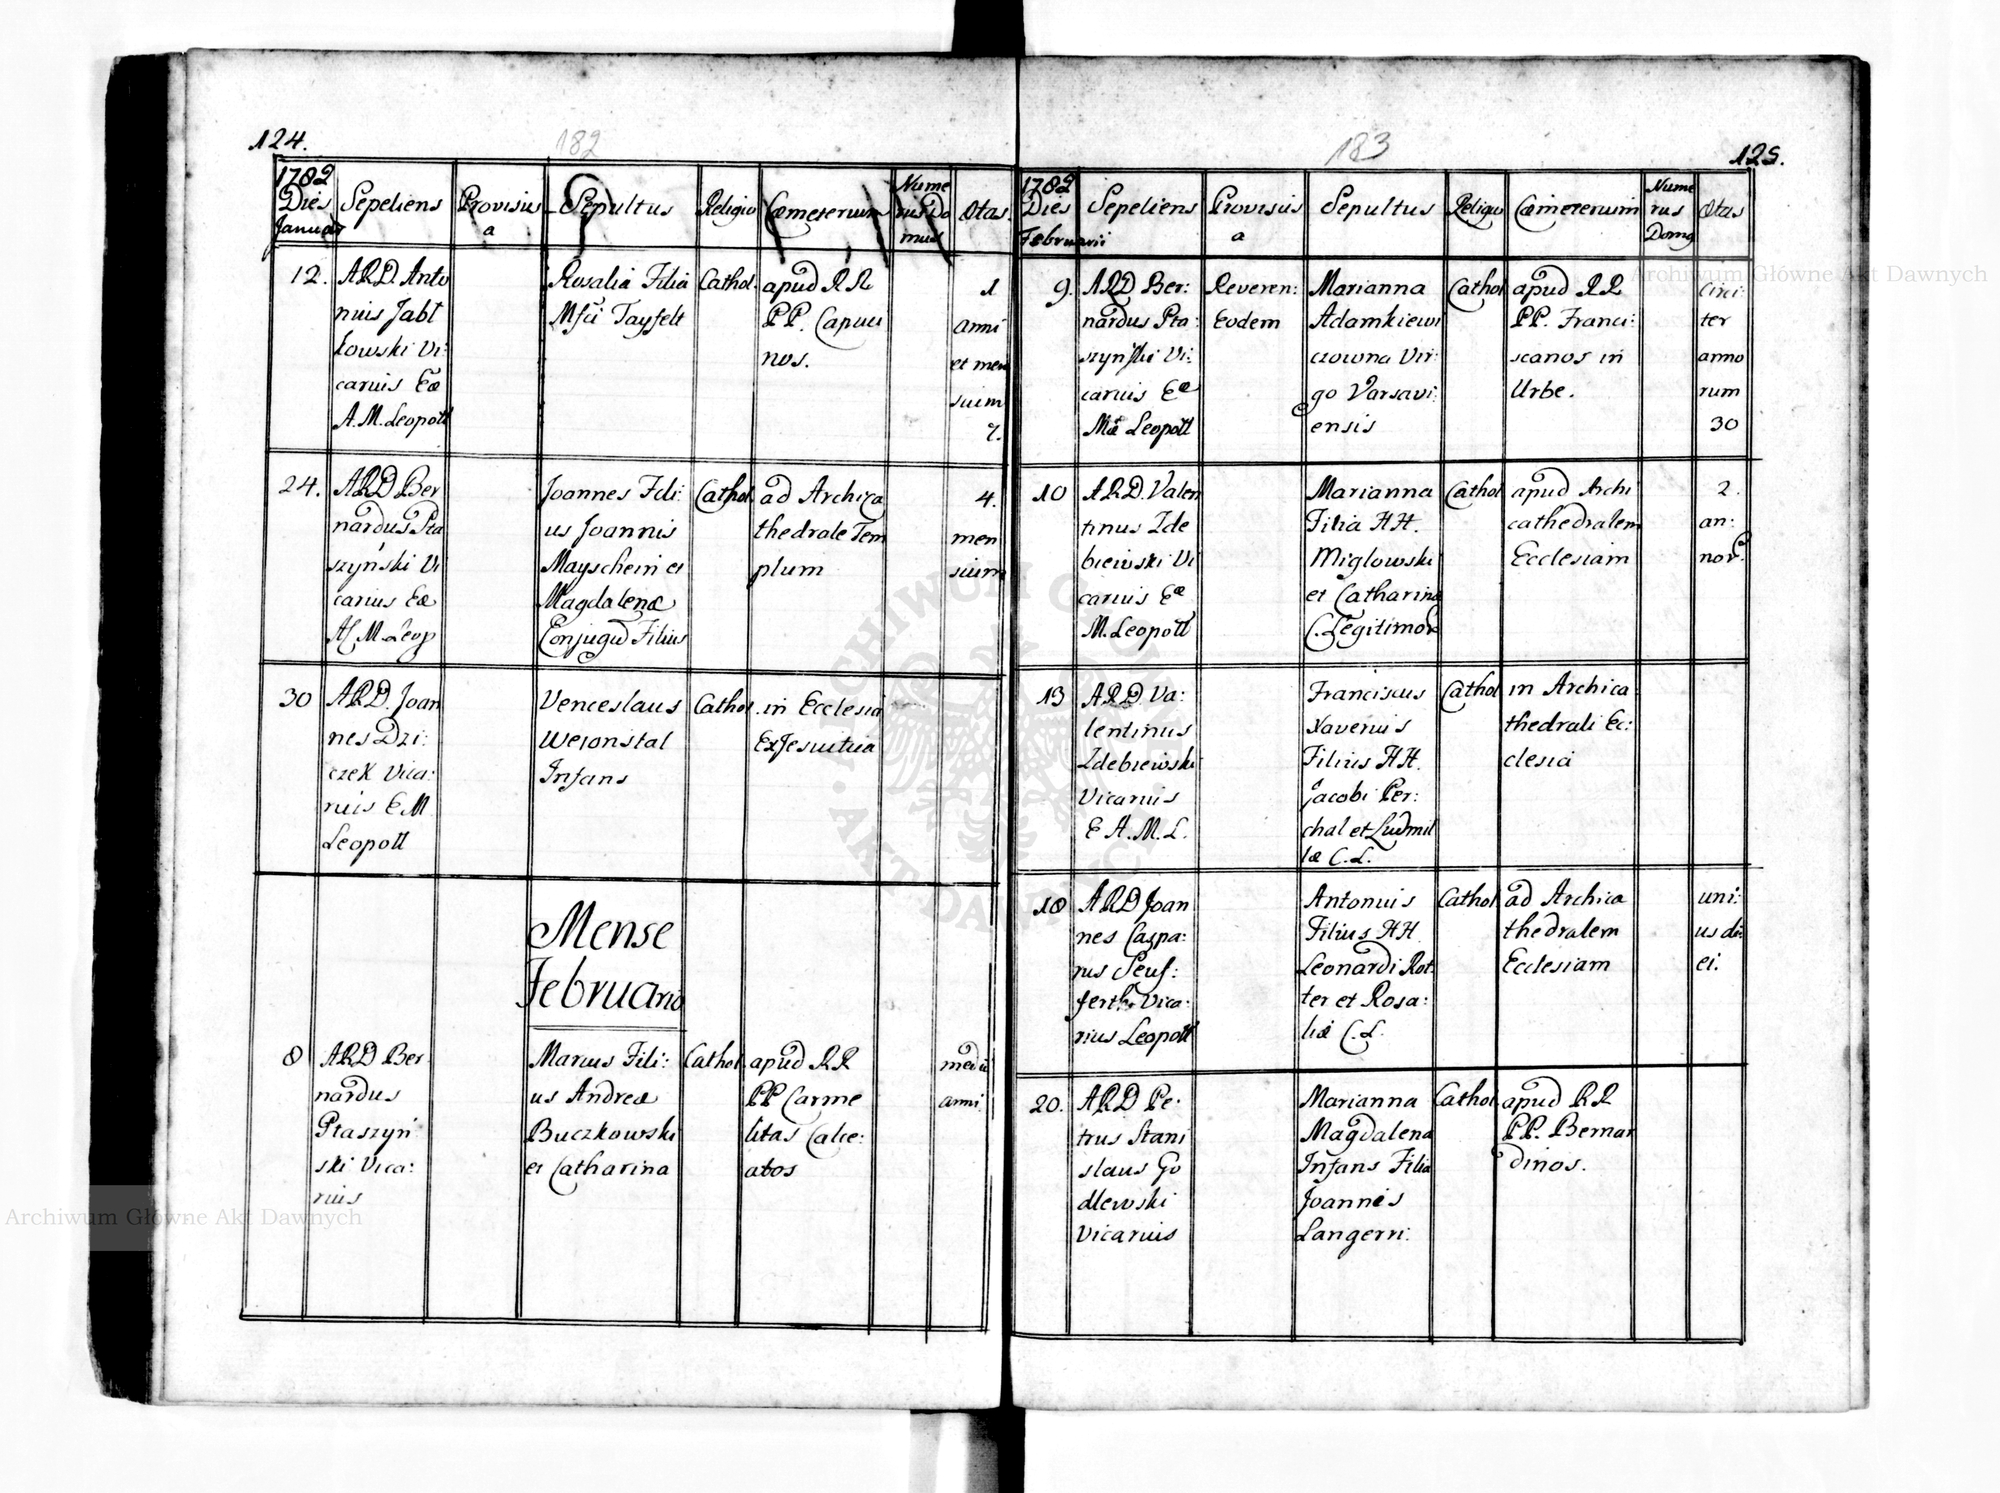 124.
182
1782
Dies
Januar
Sepeliens
Provisus
a
Sepultus
Religio
Cæmeterium
Nume
rus Do
mus
Ætas.
12.
ARD. Anto
nius Jabł
łowski Vi:
carius Eæ
A. M. Leopoll
Rosalia Filia
Msci Tayfelt
Cathol.
apud RR
PP. Capuci
nos.
1
anni
et men
sium
7.
24.
ARD Ber
nardus Pta
szyński Vi
carius Eæ
A M. Leop
Joannes Fili:
us Joannis
Mayschein et
Magdalenæ
Conjugū Filius
Cathol
ad Archica
thedrale Tem
plum
4.
men
sium
30
ARD. Joan
nes Dzi:
czek Vica:
rius E M
Leopoll
Venceslaus
Weionstal
Infans
Cathol.
in Ecclesia
ExJesuitica
Mense
Februario
8
ARD Ber
nardus
Ptaszyń
ski Vica:
rius
Marcus Fili:
us Andreæ
Buczkowski
et Catharina
Cathol.
apud RR
PP Carme
litas Calce:
atos
medii
anni
183
125.
1782
Dies
Februarii
Sepeliens
Provisus
a
Sepultus
Religio
Cæmeterium
Nume
rus
Domq
Ætas
9.
ARD Ber:
nardus Pta:
szyński Vi:
carius Eæ
Mæ Leopoll
Reveren:
Eodem
Marianna
Adamkiewi
czowna Vir:
go Varsavi:
ensis
Cathol
apud RR
PP. Franci:
scanos in
Urbe.
circi:
ter
anno
rum
30
10
ARD. Valen
tinus Zde
biewski Vi
carius Eæ
M. Leopoll
Marianna
Filia HH.
Miglowski
et Catharina
C. Legitimor
Cathol
apud Archi
cathedralem
Ecclesiam
2.
an:
nor.
13
ARD. Va:
lentinus
Zdebiewski
Vicarius
E A. M. L.
Franciscus
Xaverius
Filius HH.
Jacobi Per:
chal et Ludmil
læ C. L.
Cathol
in Archica
thedrali Ec:
clesia
18
ARD Joan
nes Caspa:
rus Seuf:
ferth Vica:
rius Leopoll
Antonius
Filius HH
Leonardi Rot:
ter et Rosa:
liæ C. L.
Cathol
ad Archica
thedralem
Ecclesiam
uni:
us di:
ei.
20.
ARD Pe:
trus Stani
slaus Go
dlewski
Vicarius
Marianna
Magdalena
Infans Filia
Joannis
Langerri:
Cathol
apud RR
PP. Bernar
dinos.
Archiwum Główne Akt Dawnych
Archiwum Główne Akt Dawnych